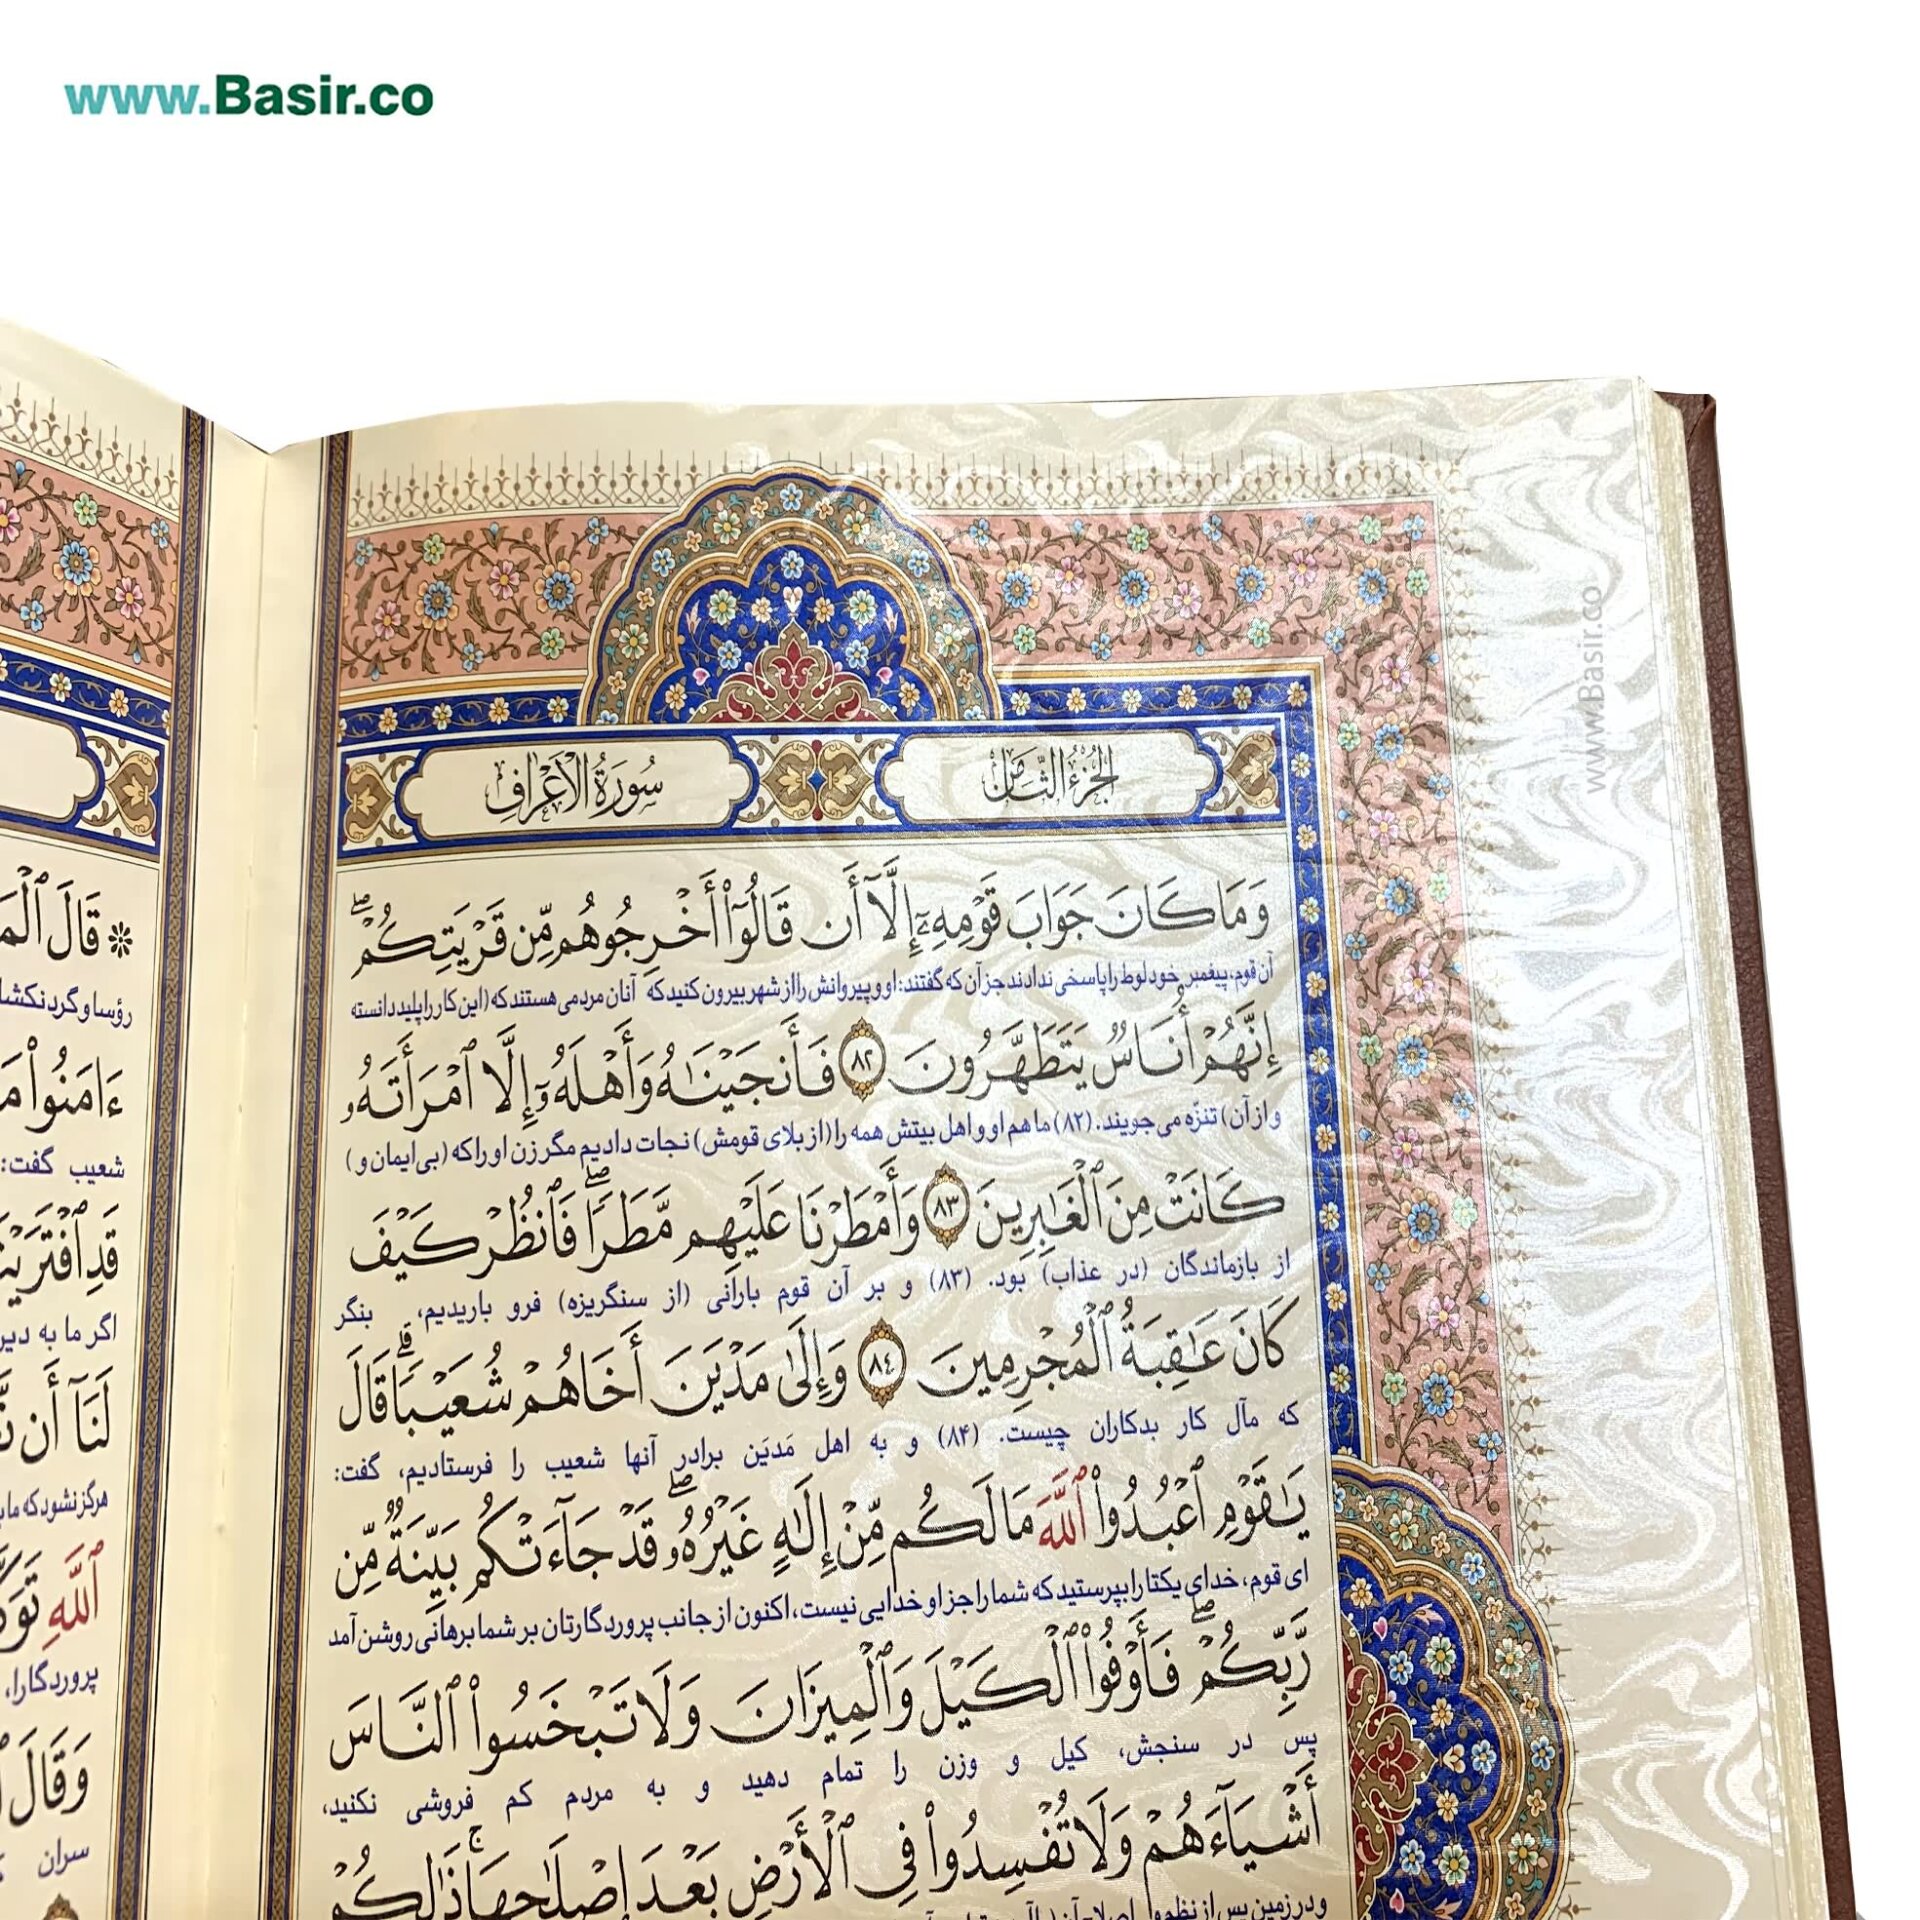 www.Basir.co
الجُزءُ الثّامن
سُورَةُ الْأَعْرَافِ
وَمَا كَانَ جَوَابَ قَوْمِهِۦٓ إِلَّآ أَن قَالُوٓا۟ أَخْرِجُوهُم مِّن قَرْيَتِكُمْۖ
آن قوم، پیغمبر خود لوط را پاسخی ندادند جز آن که گفتند: او و پیروانش را از شهر بیرون کنید که آنان مردمی هستند که (این کار را پلید دانسته
إِنَّهُمْ أُنَاسٌ يَتَطَهَّرُونَ ﴿٨٢﴾ فَأَنجَيْنَٰهُ وَأَهْلَهُۥٓ إِلَّا ٱمْرَأَتَهُۥ
و از آن) تنزّه می‌جویند. (۸۲) ما هم او و اهل بیتش همه را (از بلای قومش) نجات دادیم مگر زن او را که (بی‌ایمان و)
كَانَتْ مِنَ ٱلْغَٰبِرِينَ ﴿٨٣﴾ وَأَمْطَرْنَا عَلَيْهِم مَّطَرًاۖ فَٱنظُرْ كَيْفَ
از بازماندگان (در عذاب) بود. (۸۳) و بر آن قوم بارانی (از سنگریزه) فرو باریدیم، بنگر
كَانَ عَٰقِبَةُ ٱلْمُجْرِمِينَ ﴿٨٤﴾ وَإِلَىٰ مَدْيَنَ أَخَاهُمْ شُعَيْبًاۗ قَالَ
که مآل کار بدکاران چیست. (۸۴) و به اهل مَدیَن برادر آنها شعیب را فرستادیم، گفت:
يَٰقَوْمِ ٱعْبُدُوا۟ ٱللَّهَ مَا لَكُم مِّنْ إِلَٰهٍ غَيْرُهُۥۖ قَدْ جَآءَتْكُم بَيِّنَةٌ مِّن
ای قوم، خدای یکتا را بپرستید که شما را جز او خدایی نیست، اکنون از جانب پروردگارتان بر شما برهانی روشن آمد
رَّبِّكُمْۖ فَأَوْفُوا۟ ٱلْكَيْلَ وَٱلْمِيزَانَ وَلَا تَبْخَسُوا۟ ٱلنَّاسَ
پس در سنجش، کیل و وزن را تمام دهید و به مردم کم فروشی نکنید،
أَشْيَآءَهُمْ وَلَا تُفْسِدُوا۟ فِى ٱلْأَرْضِ بَعْدَ إِصْلَٰحِهَاۚ ذَٰلِكُمْ
و در زمین پس از نظم و اصلاح آن
www.Basir.co
قَالَ
رؤسا و گردنکشا
ءَامَنُوا۟
شعیب گفت:
قَدِ ٱفْتَرَيْنَ
اگر ما به دین
لَنَآ أَن
هرگز نشود که ما
ٱللَّهِ
پروردگارا،
وَقَالَ
سران